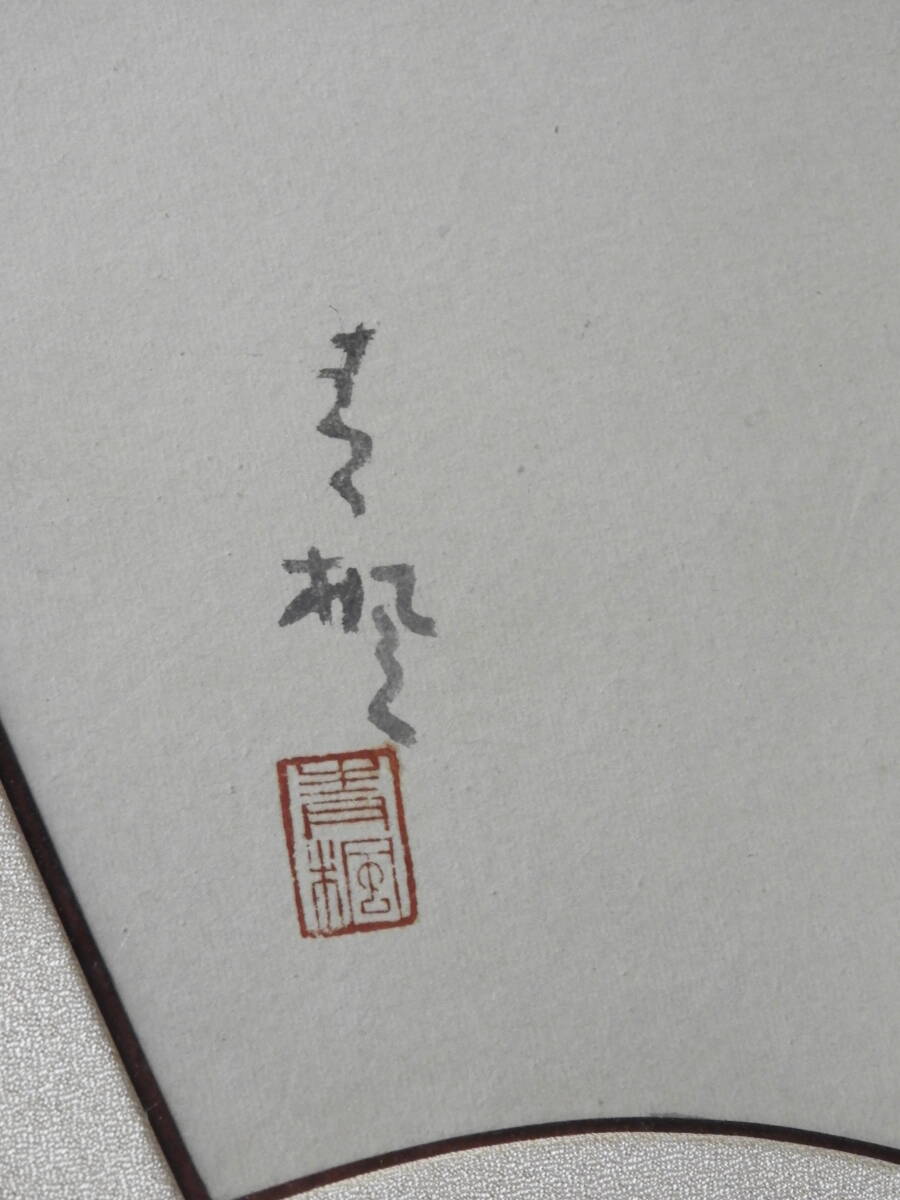 青楓
青楓